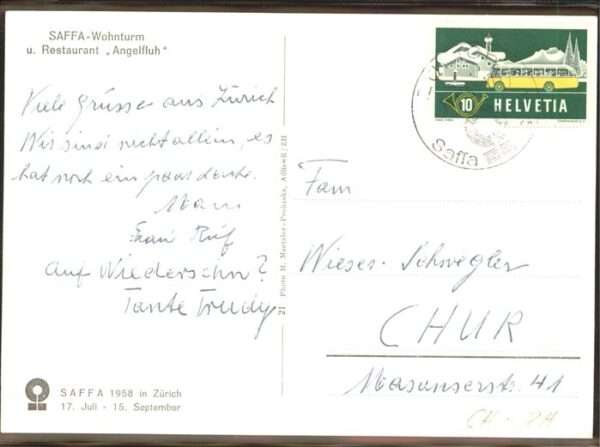 SAFFA-Wohnturm
u. Restaurant „Angelfluh"
Viele Grüsse aus Zürich
Wir sind nicht allein, es
hat noch ein paar Leute.
Mam
Frau Ruf
auf Wiedersehn?
Tante Trudy
SAFFA 1958 in Zürich
17. Juli - 15. September
21 Photo H. Maeteler-Prohaska, Adliswil/ZH
10 HELVETIA
Saffa
Fam
Wieser-Schwegler
CHUR
Masanserstr. 41
CH - ZH